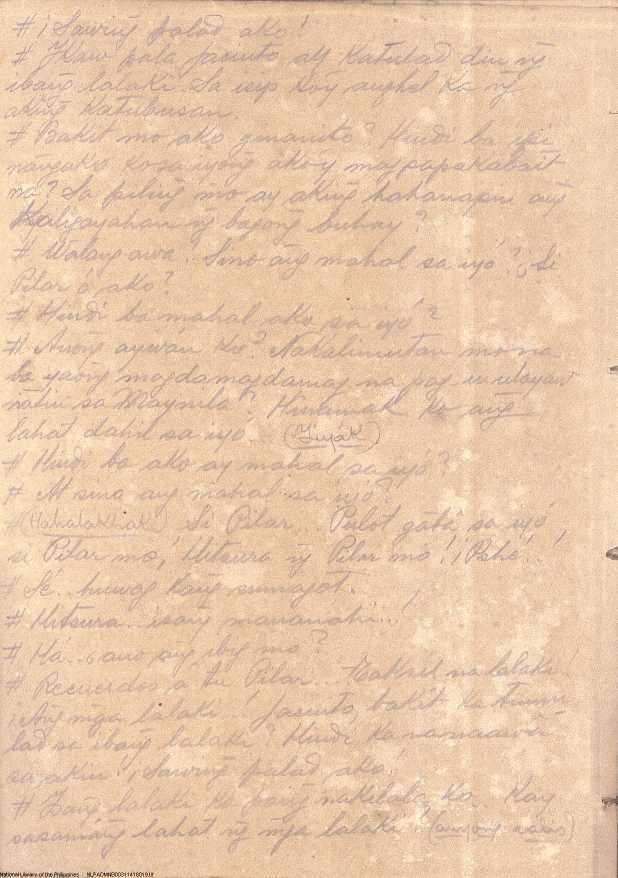 # ¡Sawing palad ako!
# Ikaw pala Jacinto ay katulad din ng
ibang lalaki. Sa isip ko'y anghel ka ng
aking katubusan.
# Bakit mo ako ginanito? Hindi ba ipi
nangako ko sa iyong ako'y magpapakabait
na? Sa piling mo ay aking hahanapin ang
kaligayahan ng bagong buhay?
# Walang awa. Sino ang mahal sa iyo? ¿Si
Pilar ó ako?
# Hindi ba mahal ako sa iyo?
# Anong aywan ko? Nakalimutan mo na
ba yaong magdamagdamag na pag uulayaw
natin sa Maynila? Hinamak ko ang
lahat dahil sa iyo. (Iiyak)
# Hindi ba ako ay mahal sa iyo?
# At sino ang mahal sa iyo?
# (Hahalakhak) Si Pilar... Pulot gata sa iyo
si Pilar mo, Hitsura ng Pilar mo! ¡Pshé..!
# Sé.. huwag kang sumagot.
# Hitsura.. isang mananahi...!
# Ha.. ¿ano ang ibig mo?
# Recuerdos a tu Pilar... Taksil na lalaki!
¡Ang mga lalaki! Jacinto, bakit ka tumu
lad sa ibang lalaki? Hindi ka namaawa
sa akin! ¡Sawing palad ako!
# Ibang lalaki ka paing nakilala ko. Kay
sasamang lahat ng mga lalaki!
National Library of the Philippines